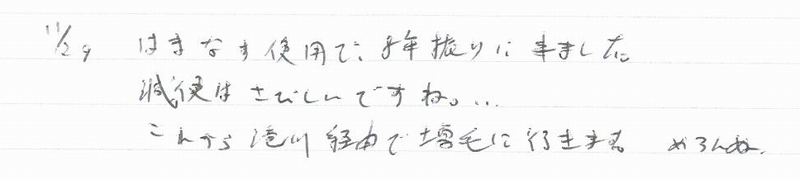 11/29 はまなす使用で、8年振りに来ました
減便はさびしいですね。...
これから滝川経由で増毛に行きます めろんぬ.